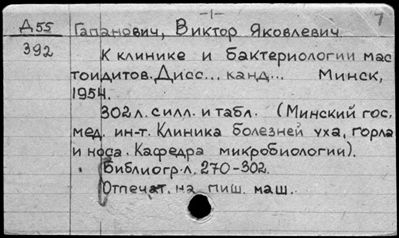 -1-
7
Д55 Гапанович, Виктор Яковлевич.
392
К клинике и бактериологии мас
тоидитов. Дисс... канд... Минск,
1954.
302 л. силл. и табл. (Минский гос.
мед. ин-т. Клиника болезней уха, горла
и носа. Кафедра микробиологии).
Библиогр. л. 270-302.
Отпечат. на пиш. маш.